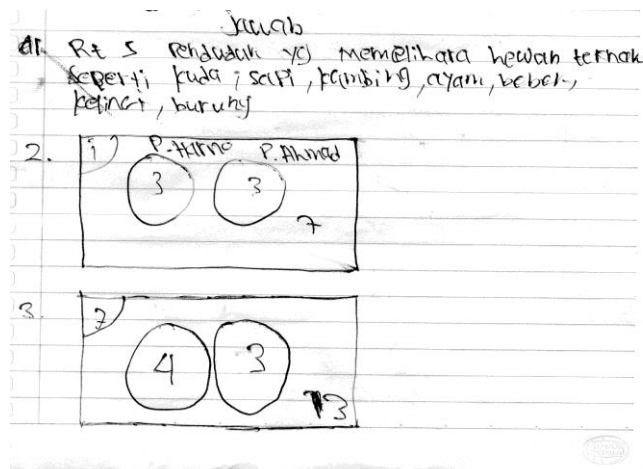 Jawab
1. Rt 5 penduduk yg memelihara hewan ternak
seperti kuda, sapi, kambing, ayam, bebek,
kelinci, burung
2. 7 P. Harno P. Ahmad
3 3
7
3. 7
4 3
13